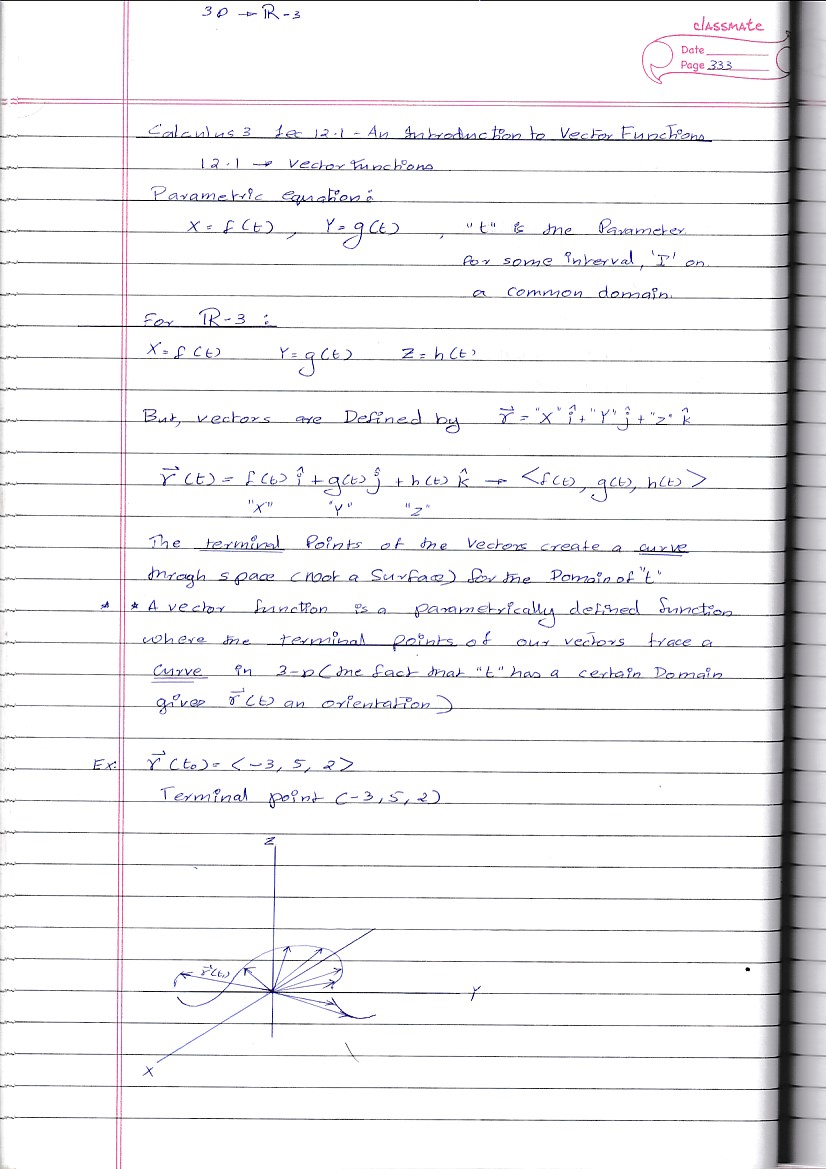 3D → ℝ-3
classmate
Date
Page 333
Calculus 3 Lec 12.1 - An Introduction to Vector Functions
12.1 → Vector Functions
Parametric equation:
X = f(t), Y = g(t), "t" is the Parameter
for some interval, 'I' on
a common domain.
For ℝ-3:
X = f(t) Y = g(t) Z = h(t)
But, vectors are Defined by r⃗ = "X" î + "Y" ĵ + "Z" k̂
r⃗(t) = f(t) î + g(t) ĵ + h(t) k̂ → <f(t), g(t), h(t)>
"X" "Y" "Z"
The terminal Points of the Vectors create a curve
throgh space (Not a Surface) for the Domain of "t"
* * A vector function is a parametrically defined function
where the terminal points of our vectors trace a
Curve in 3-D (the fact that "t" has a certain Domain
gives r⃗(t) an orientation)
Ex: r⃗(t₀) = <-3, 5, 2>
Terminal point (-3, 5, 2)
Z
r⃗(t₀)
Y
X